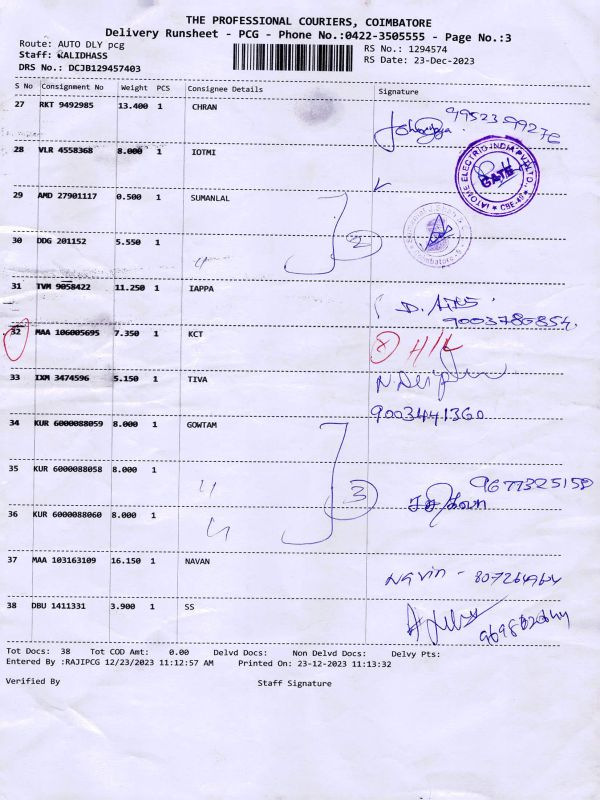 THE PROFESSIONAL COURIERS, COIMBATORE
Delivery Runsheet - PCG - Phone No.:0422-3505555 - Page No.:3
Route: AUTO DLY pcg
RS No.: 1294574
Staff: KALIDHASS
RS Date: 23-Dec-2023
DRS No.: DCJB129457403
S No Consignment No Weight PCS Consignee Details Signature
27 RKT 9492985 13.400 1 CHRAN
28 VLR 4558368 8.000 1 IOTMI
GATE
CBE-49
29 AMD 27901117 0.500 1 SUMANLAL
30 DDG 201152 5.550 1
2
31 TVM 9058422 11.250 1 IAPPA
9003786854.
32 MAA 106005695 7.350 1 KCT
33 IXM 3474596 5.150 1 TIVA
9003441360
34 KUR 6000088059 8.000 1 GOWTAM
35 KUR 6000088058 8.000 1
9677325158
3
36 KUR 6000088060 8.000 1
37 MAA 103163109 16.150 1 NAVAN
Navin - 807264964
38 DBU 1411331 3.900 1 SS
Tot Docs: 38 Tot COD Amt: 0.00 Delvd Docs: Non Delvd Docs: Delvy Pts:
Entered By :RAJIPCG 12/23/2023 11:12:57 AM Printed On: 23-12-2023 11:13:32
Verified By Staff Signature